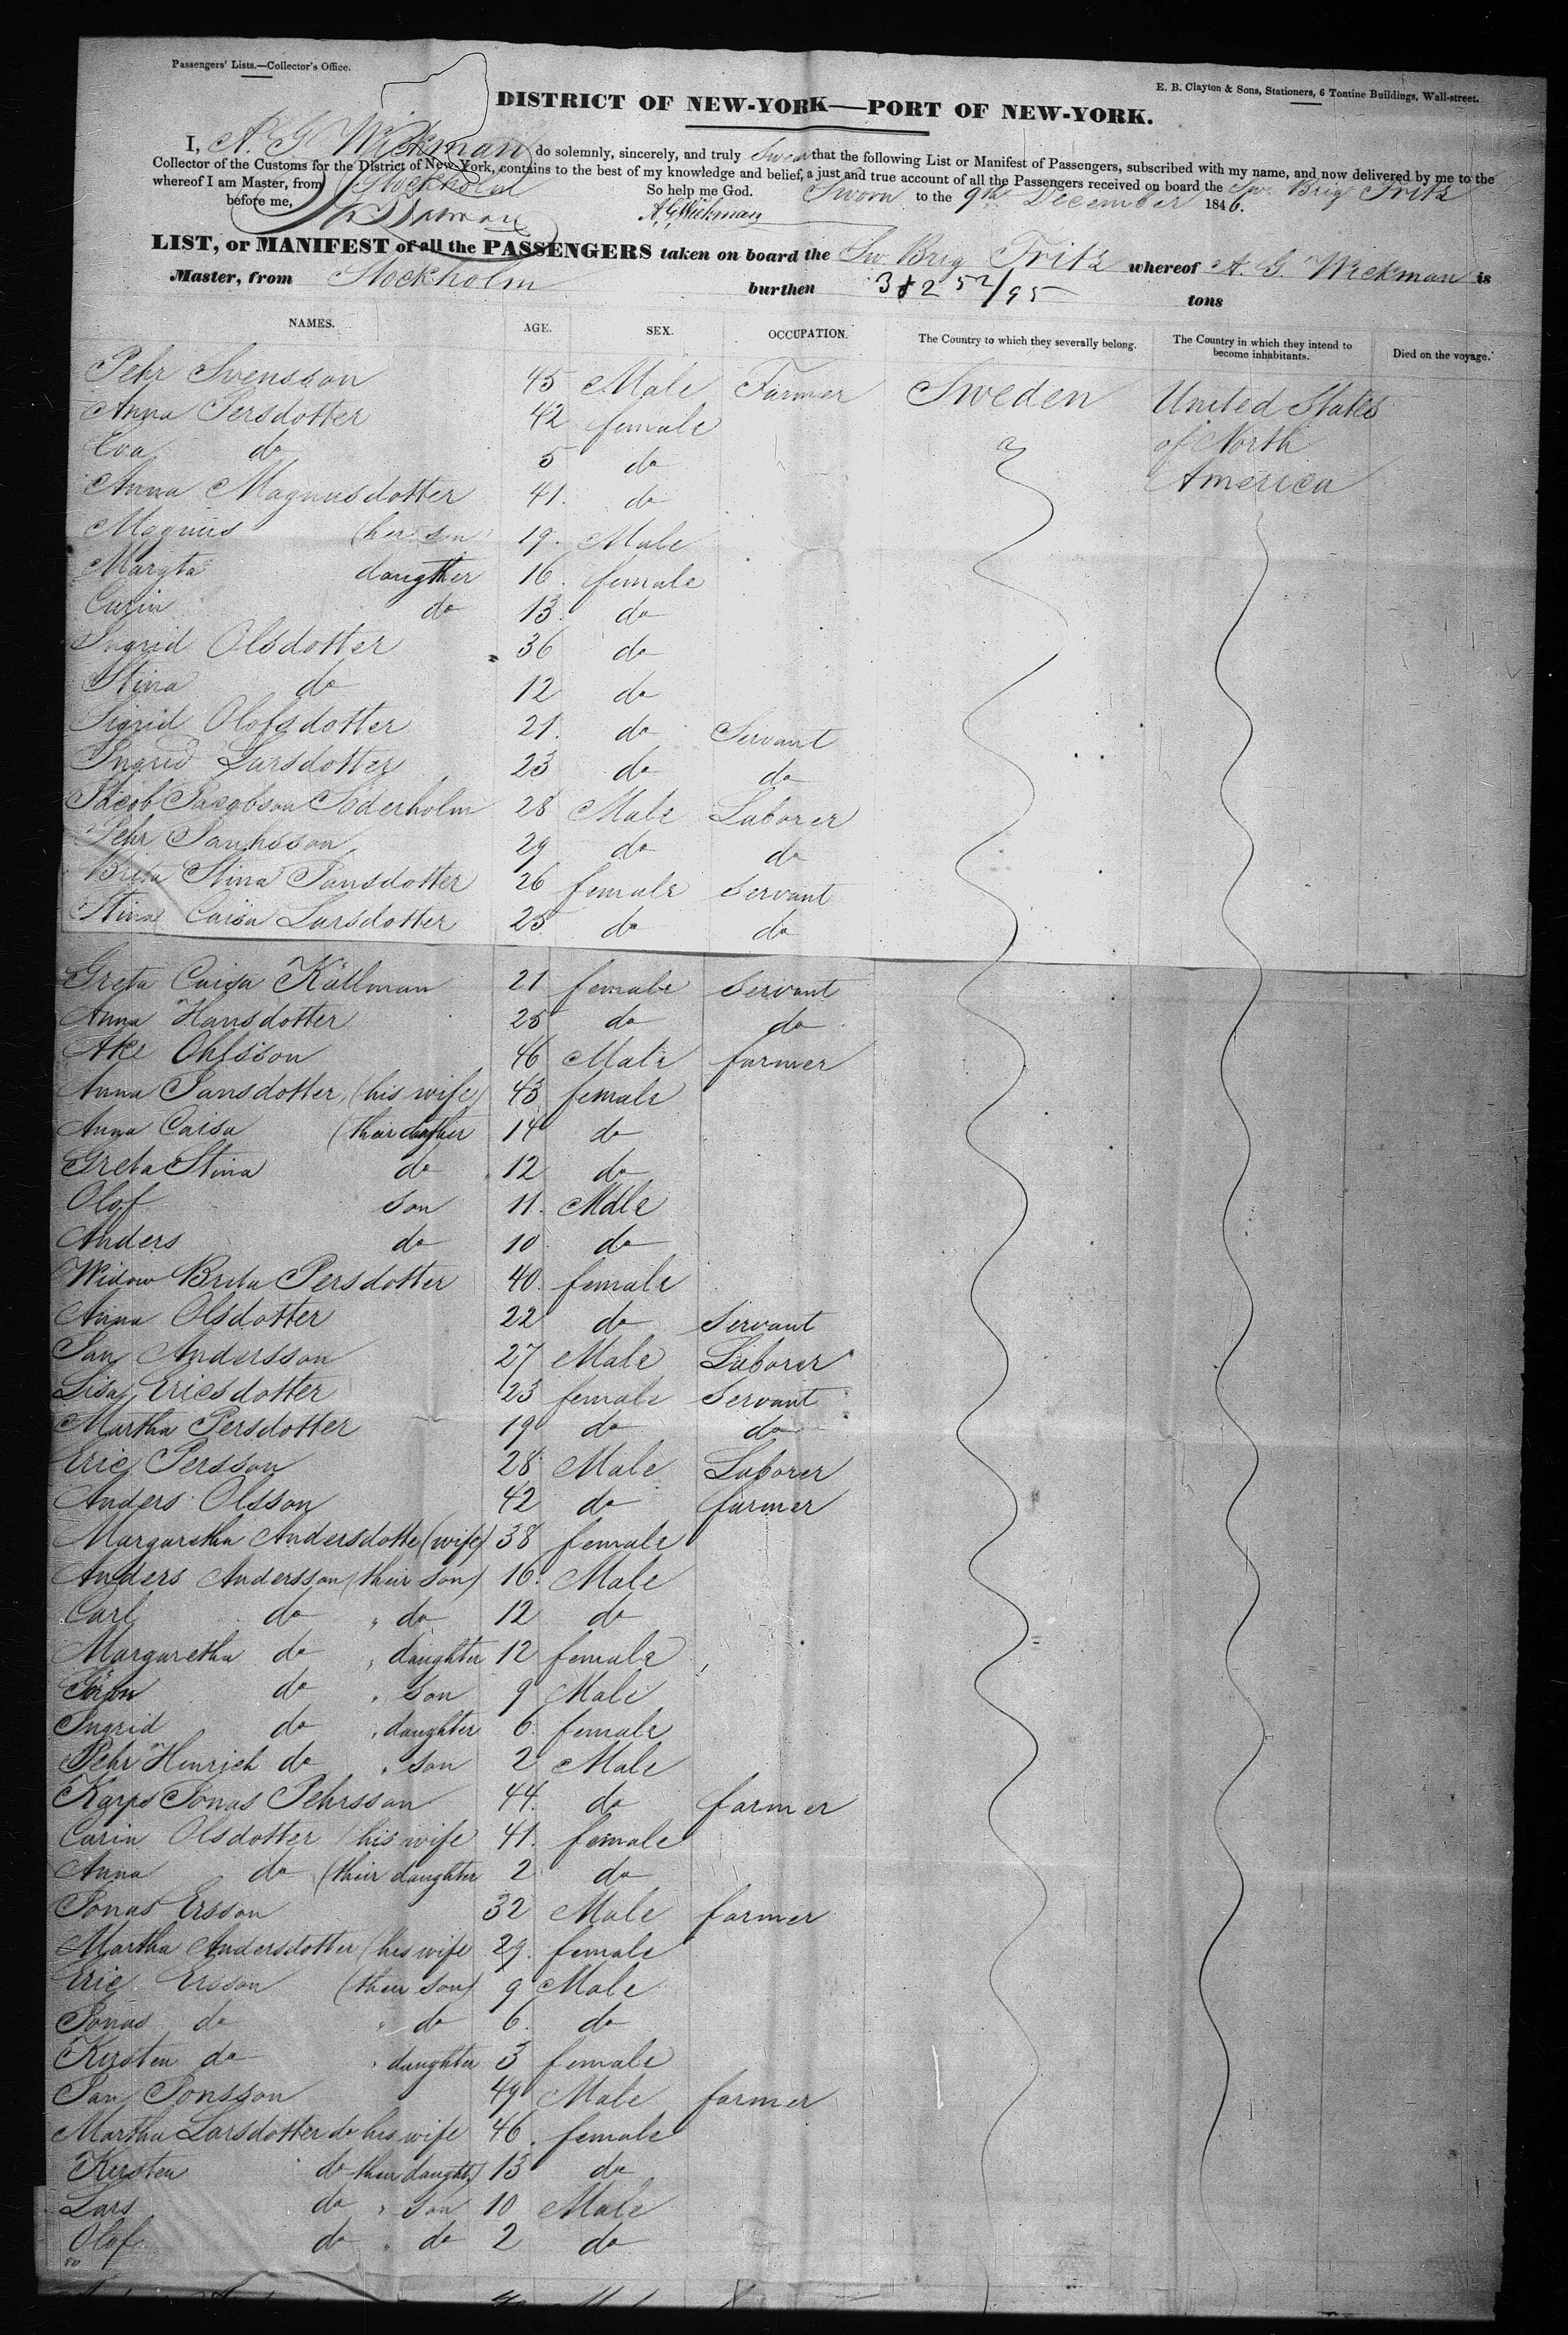 Passengers' Lists.—Collector's Office.
E. B. Clayton & Sons, Stationers, 6 Tontine Buildings, Wall-street.
DISTRICT OF NEW-YORK—PORT OF NEW-YORK.
I, A. G. Wickman do solemnly, sincerely, and truly Swear that the following List or Manifest of Passengers, subscribed with my name, and now delivered by me to the
Collector of the Customs for the District of New York, contains to the best of my knowledge and belief, a just and true account of all the Passengers received on board the Sw. Brig Fritz
whereof I am Master, from Stockholm So help me God. Sworn to the 9th December 1846.
before me, A. G. Wickman
LIST, or MANIFEST of all the PASSENGERS taken on board the Sw. Brig Fritz whereof A. G. Wickman is
Master, from Stockholm burthen 382 52/95 tons
NAMES. AGE. SEX. OCCUPATION. The Country to which they severally belong. The Country in which they intend to become inhabitants. Died on the voyage.
Pehr Svensson 45 Male Farmer Sweden United States
Anna Persdotter 42 female of North
Eva do 5 do America
Anna Magnusdotter 41. do
Magnus (her son) 19. Male
Margta daugther 16. female
Carin do 13. do
Ingrid Olsdotter 36 do
Stina do 12 do
Sigrid Olofsdotter 21. do Servant
Ingrid Larsdotter 23 do do
Jacob Jacobson Söderholm 28 Male Laborer
Pehr 29 do do
Brita Stina Jansdotter 26 female servant
Stina Caisa Larsdotter 25 do do
Greta Caisa Källman 21 female servant
Anna Hansdotter 25 do do
Ake Ohlsson 46 Male farmer
Anna Jansdotter, (his wife) 43 female
Anna Caisa (their daugther 14 do
Greta Stina do 12 do
Olof son 11. Male
Anders do 10 do
Widow Brita Persdotter 40. female
Anna Olsdotter 22 do servant
Jan Andersson 27 Male Laborer
Lisa Ericsdotter 23 female servant
Martha Persdotter 19 do do
Eric Persson 28 Male Laborer
Anders Olsson 42 do farmer
Margaretha Andersdotte (wife) 38 female
Anders Andersson (their son) 16. Male
Carl do " do 12 do
Margaretha do " daughter 12 female
Göran do " son 9 Male
Ingrid do " daughter 6. female
Pehr Henrich do " son 2 Male
Karps Jonas Pehrsson 44. do farmer
Carin Olsdotter (his wife 41. female
Anna do (their daughter 2 do
Jonas Ersson 32 Male farmer
Martha Andersdotter (his wife 29. female
Eric Ersson (their son) 9 Male
Jonas do " do 6. do
Kersten do " daughter 3 female
Jan Jonsson 49 Male farmer
Martha Larsdotter do his wife 46. female
Kersten do their daught.) 13 do
Lars do " son 10 Male
Olof do " do 2 do